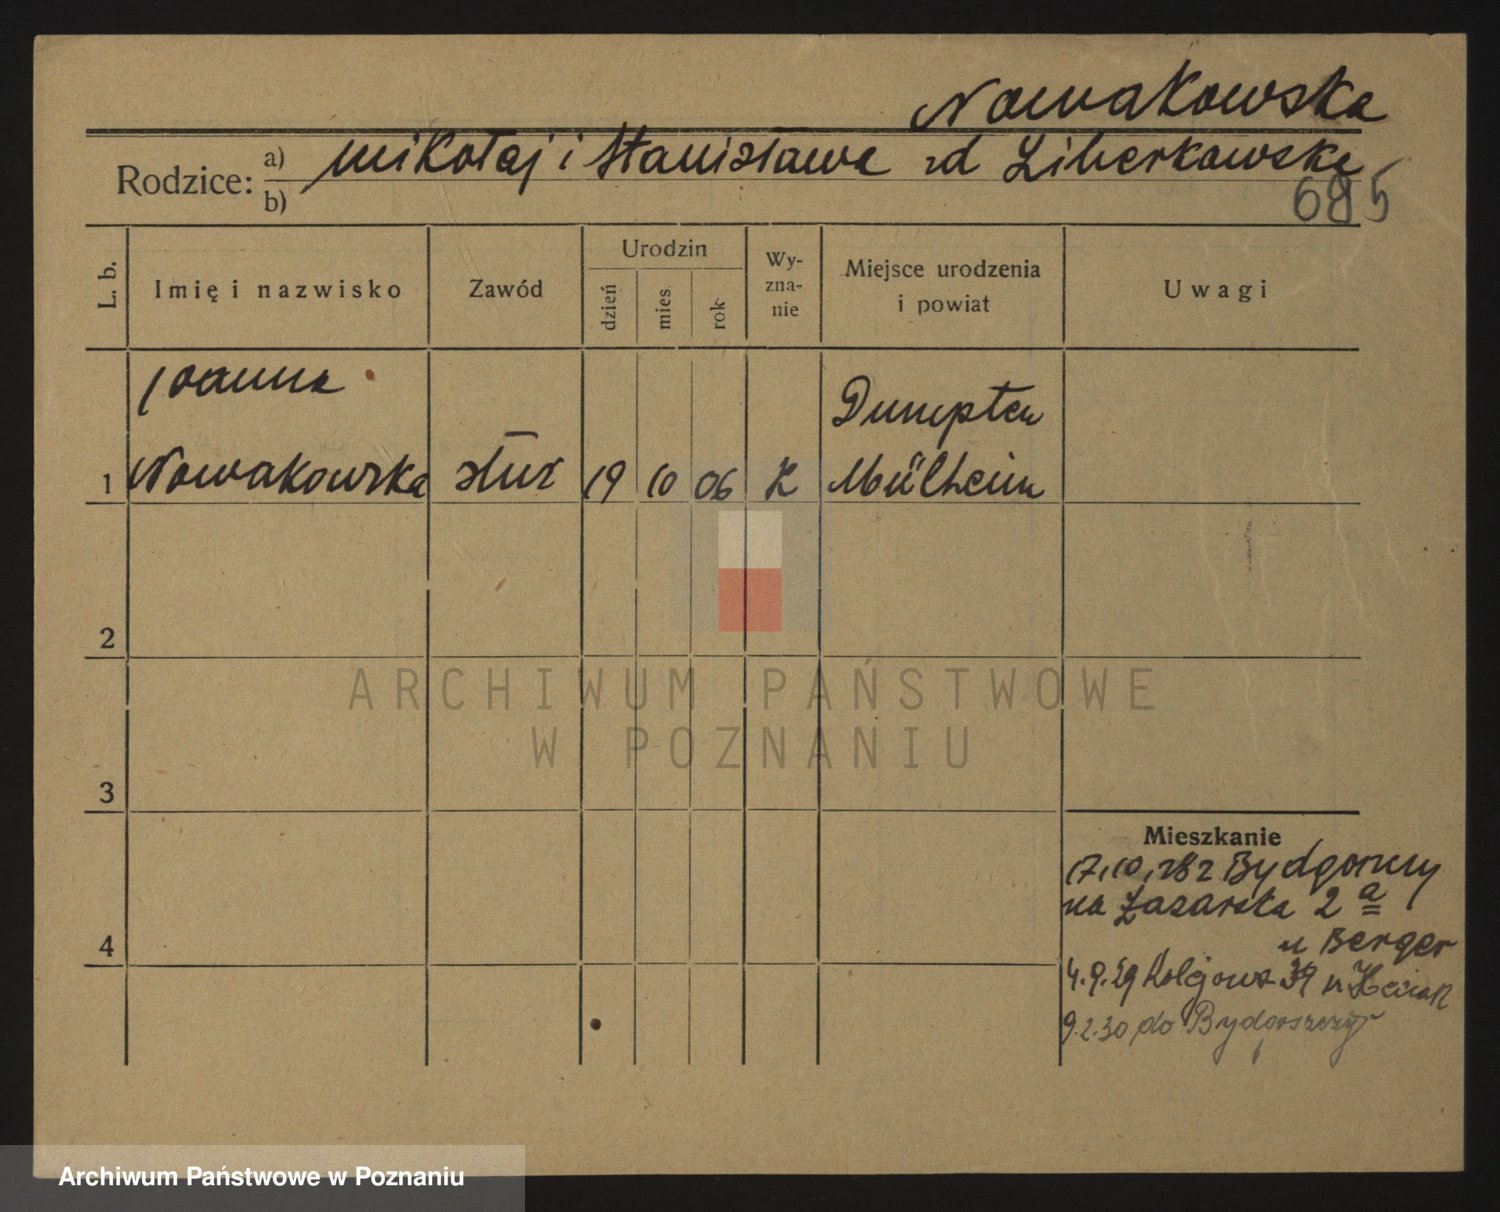 Nowakowska
Rodzice: a) Mikołaj i Stanisława zd Liberkowska
b)
685
L. b.
Imię i nazwisko
Zawód
Urodzin
dzień
mies.
rok
Wy-
zna-
nie
Miejsce urodzenia
i powiat
Uwagi
Joanna
Dumpten
1 Nowakowska służ 19 10 06 K Mülheim
2
ARCHIWUM PAŃSTWOWE
W POZNANIU
3
Mieszkanie
17.10.28 z Bydgoszczy
na Łazarska 2 a
4
u Berger
4.9.29 Kolejowa 39 u
9.2.30 do Bydgoszczy
Archiwum Państwowe w Poznaniu